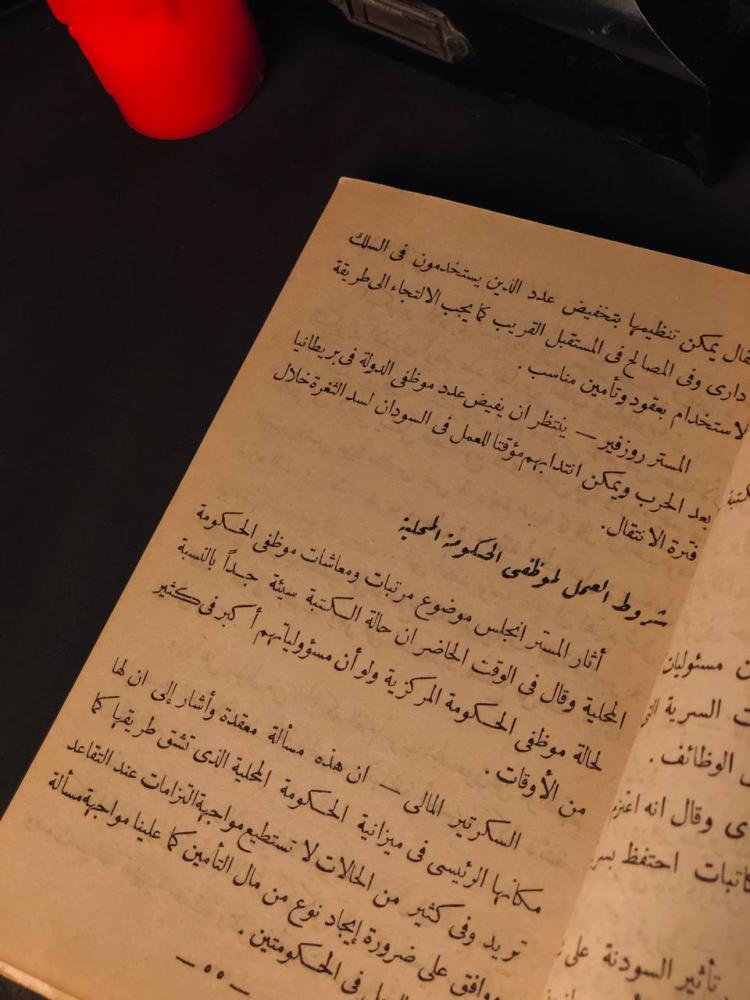 يمكن تنظيمها بتخفيض عدد الذين يستخدمون فى السلك
دارى وفى المصالح فى المستقبل القريب كما يجب الالتجاء الى طريقة
لاستخدام بعقود وتأمين مناسب .
المستر روزفير — ينتظر ان يفيض عدد موظفى الدولة فى بريطانيا
بعد الحرب ويمكن انتدابهم مؤقتا للعمل فى السودان لسد الثغرة خلال
فترة الانتقال.
شروط العمل لموظفى الحكومة المحلية
أثار المستر انجلس موضوع مرتبات ومعاشات موظفى الحكومة
المحلية وقال فى الوقت الحاضر ان حالة الكتبة سيئة جداً بالنسبة
لحالة موظفى الحكومة المركزية ولو أن مسؤولياتهم أكبر فى كثير
من الأوقات .
السكرتير المالى — ان هذه مسألة معقدة وأشار إلى ان لها
مكانها الرئيسى فى ميزانية الحكومة المحلية الذى تشق طريقها كما
تريد وفى كثير من الحالات لا تستطيع مواجهة التزامات عند التقاعد
موافق على ضرورة إيجاد نوع من مال التأمين كما علينا مواجهة مسألة
فى الحكومتين .
— ٥٥ —
مسئوليان
السرية
الوظائف .
وقال انه
احتفظ
تأثير السودنة على